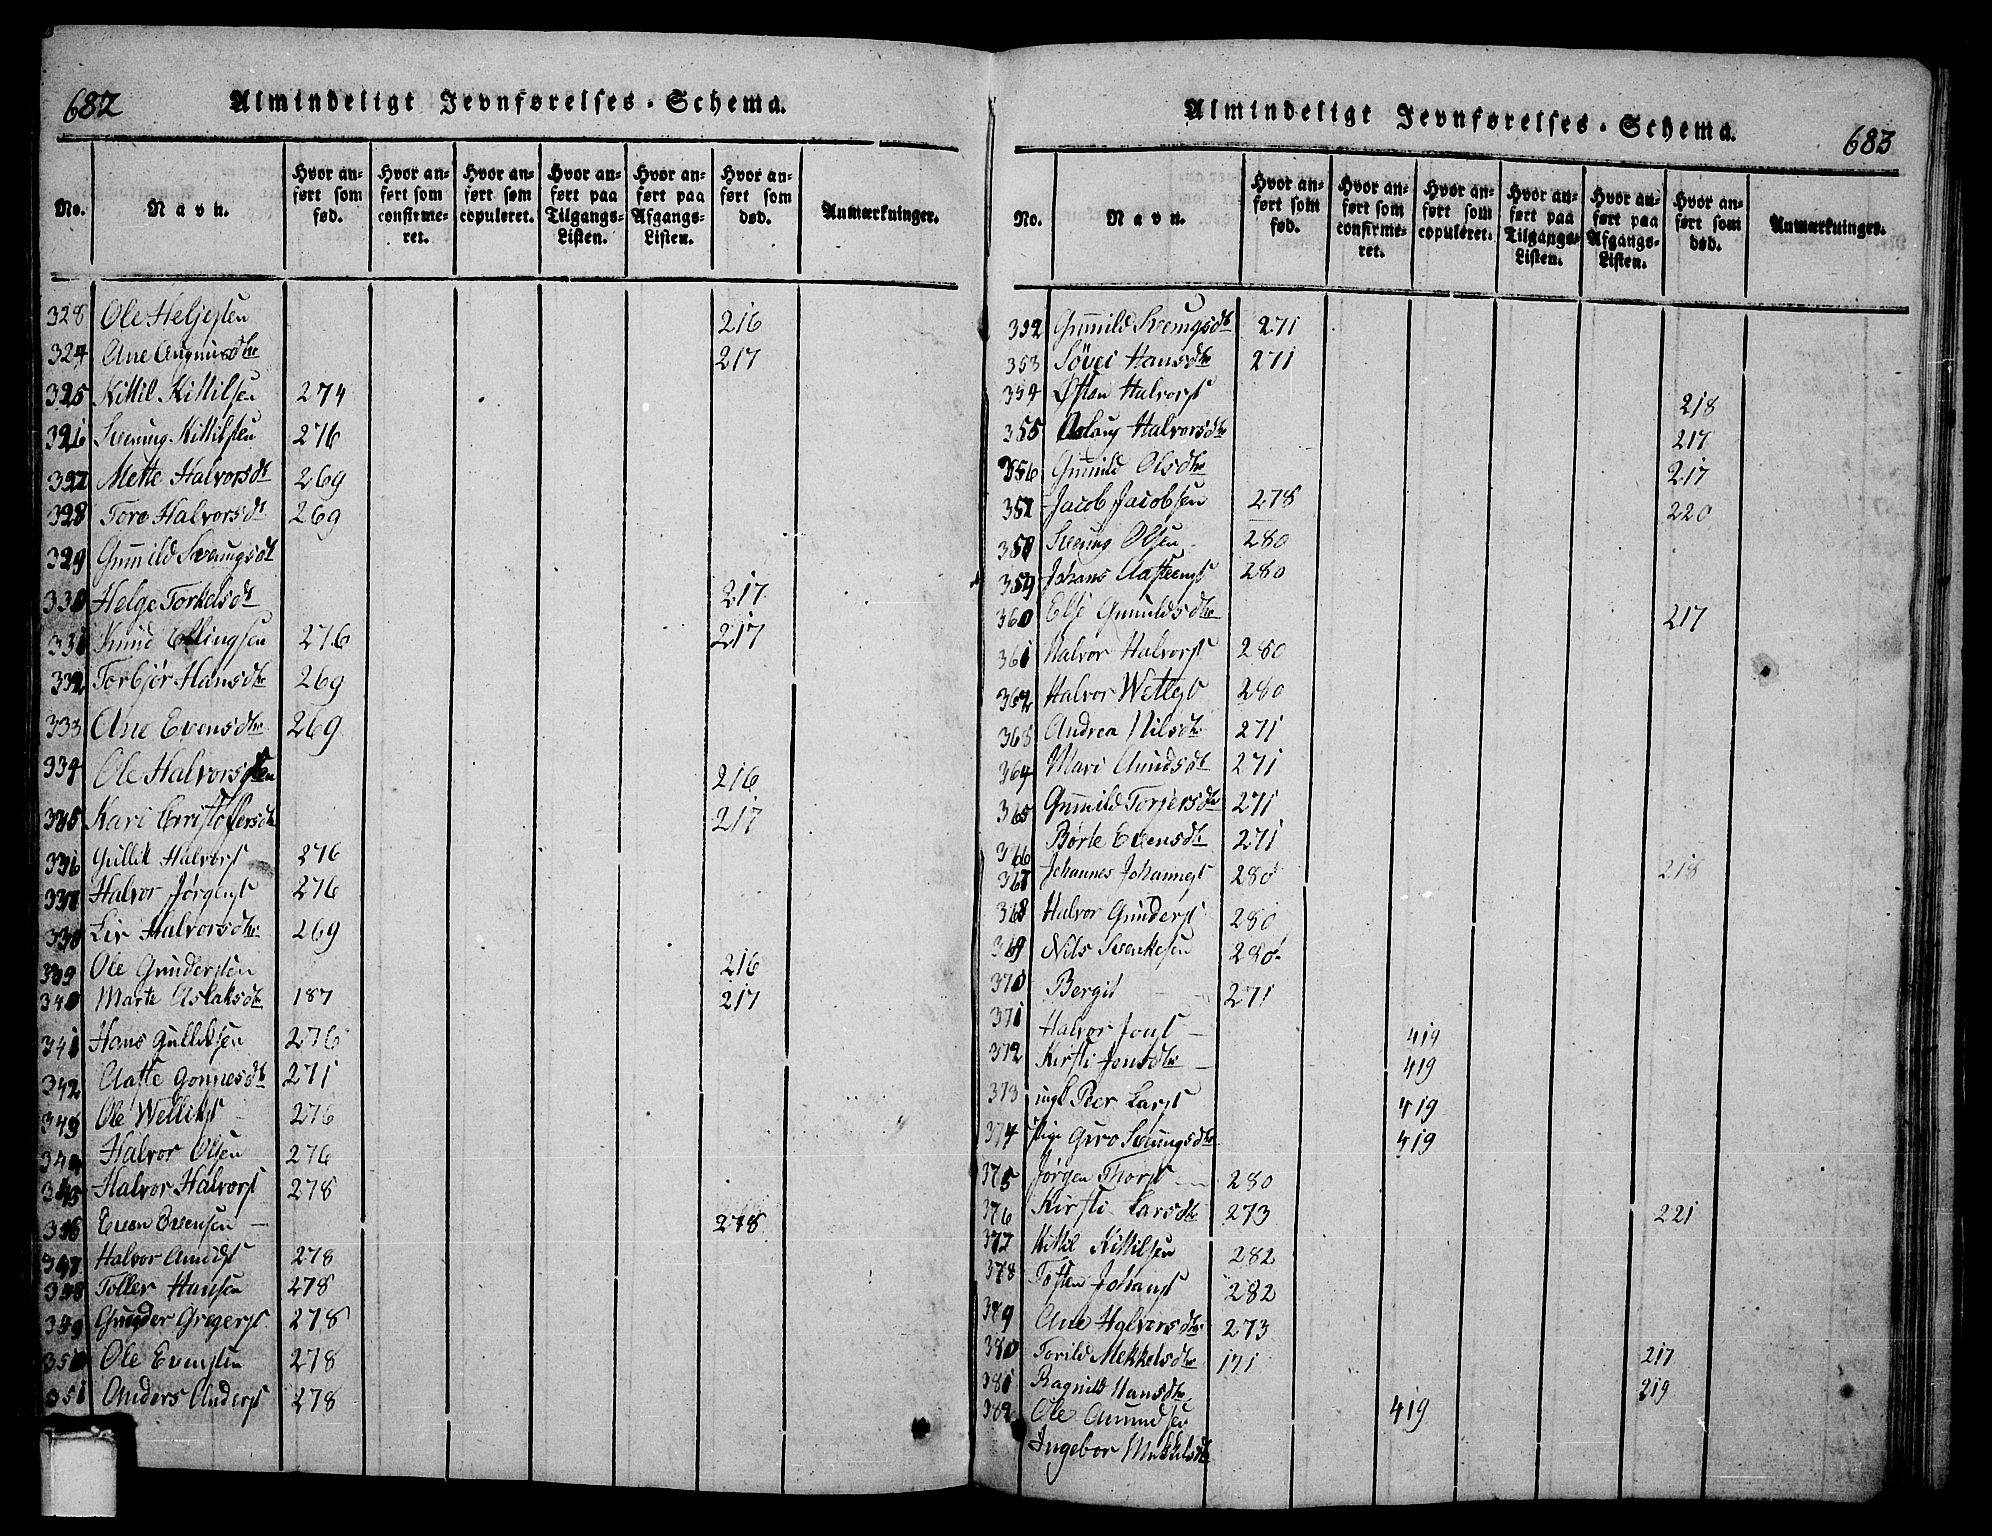 682
Almindeligt Jevnførelses-Schema.
No.
Navn.
Hvor anført som fød.
Hvor anført som confirmeret.
Hvor anført som copuleret.
Hvor anført paa Tilgangs-Listen.
Hvor anført paa Afgangs-Listen.
Hvor anført som død.
Anmærkninger.
328 Ole Heljesten 216
324 Ane Augunsdtr 217
325 Kittil Kittilsen 274
326 Sveinung Kittilsen 276
327 Mette Halvorsdt 269
328 Tore Halvorsdt 269
329 Gunnild Sveinungsdt
330 Helge Torkelsdt 217
331 Knud Ellingsen 276 217
332 Torbjør Hansdtr 269
333 Ane Evensdtr 269
334 Ole Halvorsen 216
335 Kari Cristoffersdtr 217
336 Gullik Halvorst 276
337 Halvor Jørgenst 276
338 Liv Halvorsdtr 269
339 Ole Gundersten 216
340 Marte Aslaksdtr 187 217
341 Hans Gulliksen 276
342 Aaste Gonnesdt 271
343 Ole Wellikst 276
344 Halvor Olsen 276
345 Halvor Halvorst 278
346 Even Evensen 278
347 Halvor Amndst 278
348 Toller Hansen 278
349 Gunder Gregerst 278
350 Ole Evensten 278
351 Anders Anderst 278
683
Almindeligt Jevnførelses-Schema.
No.
Navn.
Hvor anført som fød.
Hvor anført som confirmeret.
Hvor anført som copuleret.
Hvor anført paa Tilgangs-Listen.
Hvor anført paa Afgangs-Listen.
Hvor anført som død.
Anmærkninger.
352 Gunnild Sveinungsdt 271
353 Søvei Hansdtr 271
354 Østen Halvorst 218
355 Aslaug Halvorsdtr 217
356 Gunnild Olsdtr 217
357 Jacob Jacobsen 278 220
358 Sveinung Olsen 280
359 Johans Aasteenst 280
360 Else Gunuldsdtr 217
361 Halvor Halvorst 280
362 Halvor Wetlest 280
363 Andrea Nilsdtr 271
364 Mari Amundsdt 271
365 Gunnild Torjersdtr 271
366 Børte Evensdtr 271
367 Johannes Johannest 280 218
368 Halvor Gunderst 280
369 Nils Svenkesen 280
370 Bergit 271
371 Halvor Jonst 419
372 Kirsti Jonsdtr 419
373 ungk Peer Larst 419
374 Pige Guro Sveinungsdtr 419
375 Jørgen Thorst 280
376 Kirsti Larsdtr 273 221
377 Kittil Kittilsen 282
378 Tosten Johanst 282
379 Ane Halvorsdtr 273
380 Torild Mekkelsdtr 171 217
381 Ragnild Hansdtr 219
382 Ole Amundsen 419
Ingebor Mekkelsdtr